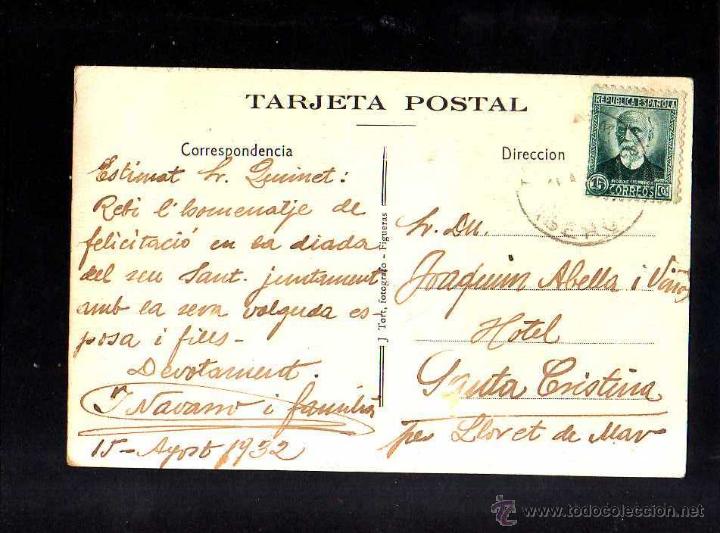 TARJETA POSTAL
Correspondencia
Estimat Sr. Quimet:
Rebi l'homenatje de
felicitació en la diada
del seu Sant. juntament
amb la seva volguda es-
posa i fills-
Devotament.
J Navarro i familia
15- Agost 1932
J. Tort, fotógrafo - Figueras
Direccion
REPUBLICA ESPAÑOLA
15 CORREOS Cts
Sr. Dn.
Joaquim Abella i Viñas
Hotel
Santa Cristina
per Lloret de Mar
todocoleccion
www.todocoleccion.net